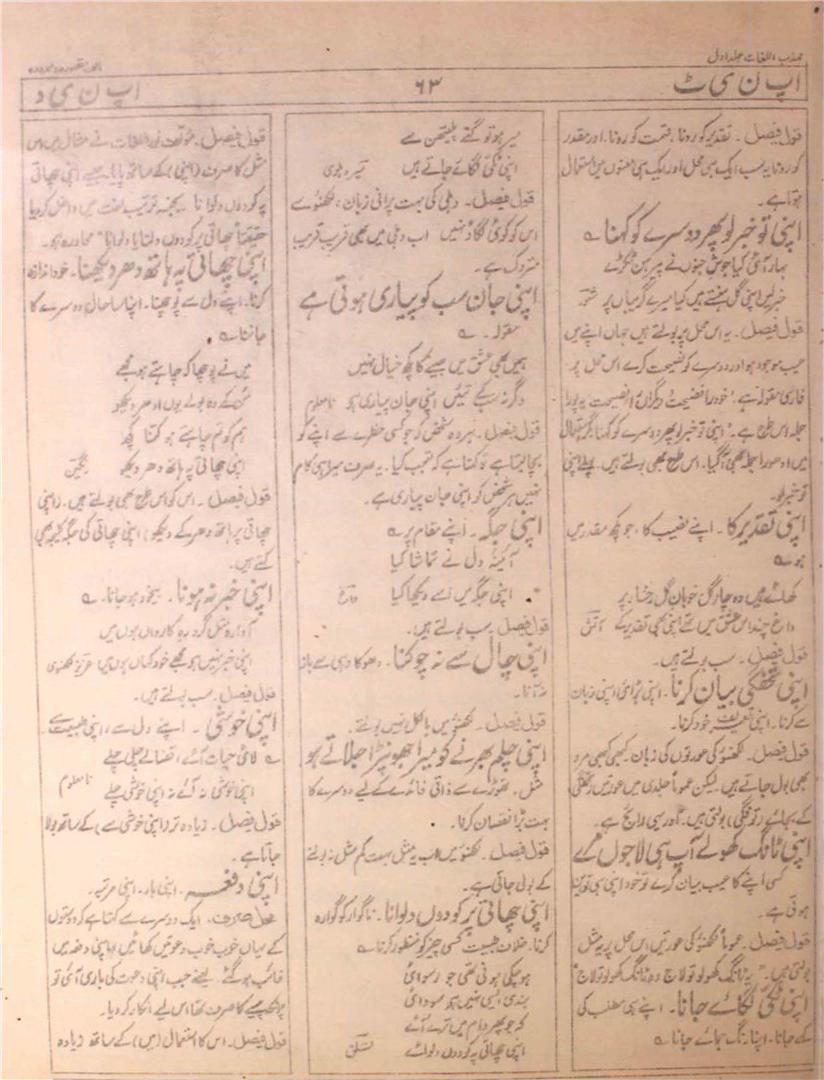 مہذب اللغات جلد اول
الف مقصورہ و ممدودہ
اپ ن ی ٹ
۶۳
اپ ن ی د
قول فیصل۔ تقدیر کو رونا، قسمت کو رونا، اور مقدر
کو رونا یہ سب ایک ہی محل اور ایک ہی معنوں میں استعمال
ہوتا ہے۔
اپنی تو خبر لو پھر دوسرے کو کہنا ؎
بہار آئی کیا جوش جنوں نے پیرہن ٹکڑے
خبر لیں اپنی گل ہنستے ہیں کیا میرے گریباں پر شعور
قول فیصل۔ یہ اس محل پر بولتے ہیں جہاں اپنے میں
عیب موجود ہو اور دوسرے کو نصیحت کرے اس محل پر
فارسی مقولہ ہے۔ "خود را فضیحت دیگراں را نصیحت" یہ پورا
جملہ اس طرح ہے۔ "اپنی تو خبر لو پھر دوسرے کو کہنا" مگر استعمال
میں ادھورا جملہ بھی آگیا۔ اس طرح بھی بولتے ہیں۔ پہلے اپنی
تو خبر لو۔
اپنی تقدیر کا۔ اپنے نصیب کا، جو کچھ مقدر میں
ہو ؎
کھائے ہیں وہ چار گل خوبان گل رخسار پر
داغ چند اس عشق میں تھے اپنی بھی تقدیر کے آتش
قول فیصل۔ سب بولتے ہیں۔
اپنی تھگی بیان کرنا۔ اپنی بڑائی اپنی زبان
سے کرنا۔ اپنی تعریف خود کرنا۔
قول فیصل۔ لکھنؤ کی عورتوں کی زبان۔ کبھی کبھی مرد
بھی بول جاتے ہیں۔ لیکن عموماً جلدی میں عورتیں
کے بجائے بولتی ہیں۔ اور یہی رائج ہے۔
اپنی ٹانگ کھولے آپ ہی لاجوں مرے
کسی اپنے کا عیب بیان کرے تو خود اپنی ہی توہین
ہوتی ہے۔
قول فیصل۔ عموماً لکھنؤ کی عورتیں اس محل پر یہ مثل
بولتی ہیں۔ "یہ ٹانگ کھولو تو لاج وہ ٹانگ کھولو تو لاج"
اپنی ٹکی لگائے جانا۔ اپنے ہی مطلب کی
کہے جانا۔ اپنا رنگ جمائے جانا ؎
میر ہو تو گئے پلیتھن سے
اپنی ٹکی لگائے جاتے ہیں میر دہلوی
قول فیصل۔ دہلی کی بہت پرانی زبان، لکھنؤ سے
اس کو کوئی لگاؤ نہیں اب دہلی میں بھی قریب قریب
متروک ہے۔
اپنی جان سب کو پیاری ہوتی ہے
مقولہ۔ ؎
ہمیں بھی عشق میں جینے کا کچھ خیال نہیں
وگرنہ سب کے تئیں اپنی جان پیاری ہو نامعلوم
قول فیصل۔ ہر وہ شخص کہ جو کسی خطرے سے اپنے کو
بچا لیتا ہے تو کہتا ہے کہ تعجب کیا۔ یہ صرف میرا ہی کام
نہیں ہر شخص کو اپنی جان پیاری ہے۔
اپنی جگہ۔ اپنے مقام پر ؎
آئینۂ دل نے تماشا کیا
اپنی جگہ میں نے دیکھا کیا داغ
قول فیصل۔ سب بولتے ہیں۔
اپنی چال سے نہ چوکنا۔ دھوکا دہی سے باز
نہ آنا۔
قول فیصل۔ لکھنؤ میں بالکل نہیں بولتے۔
اپنی چلم بھرنے کو میرا جھونپڑا جلاتے ہو
مثل۔ تھوڑے سے ذاتی فائدے کے لیے دوسرے کا
بہت بڑا نقصان کرنا۔
قول فیصل۔ لکھنؤ میں اب یہ مثل بہت کم مثل نہ بولنے
کے بولی جاتی ہے۔
اپنی چھاتی پر کودوں دلوانا۔ ناگوار کو گوارہ
کرنا۔ خلاف طبیعت کسی چیز کو منظور کرنا ؎
ہو چکی ہونی تھی جو رسوائی
بندی ایسی نہیں ہے سودائی
کہ جو پھر دام میں ترے آئے
اپنی چھاتی پہ کودوں دلوائے قلق
قول فیصل۔ مؤلف نور اللغات نے مثال میں اس
مثل کا صرف (اپنی) کے ساتھ پایا۔ جیسے اپنی چھاتی
پہ کودوں دلوانا۔ بجنسہ ترتیب لغت میں داخل کر دیا
حقیقتاً چھاتی پر کودوں دلنا یا دلوانا محاورہ ہے۔
اپنی چھاتی پہ ہاتھ دھر دیکھنا۔ خود اندازہ
کرنا۔ اپنے دل سے پوچھنا۔ اپنا سا حال دوسرے کا
جاننا ؎
میں نے پوچھا کہ چاہتے ہو مجھے
سن کے وہ بولے یوں ادھر دیکھو
ہم کو تم چاہتے ہو کتنا کچھ
اپنی چھاتی پہ ہاتھ دھر دیکھو
قول فیصل۔ اس کو اس طرح بھی بولتے ہیں۔ (اپنی
چھاتی پر ہاتھ دھر کے دیکھو) اپنی چھاتی کی جگہ کلیجہ بھی
کہتے ہیں۔
اپنی خبر نہ ہونا۔ بیخود ہو جانا۔ ؎
آوارہ مثل گرد رہ کارواں ہوں میں
اپنی خبر نہیں ہے مجھے خود کہاں ہوں میں عزیز لکھنوی
قول فیصل۔ سب بولتے ہیں۔
اپنی خوشی۔ اپنے دل سے، اپنی طبیعت سے
؎ لائی حیات آئے، قضا لے چلی چلے
اپنی خوشی نہ آئے نہ اپنی خوشی چلے نامعلوم
قول فیصل۔ زیادہ تر (اپنی خوشی سے) کے ساتھ بولا
جاتا ہے۔
اپنی دفعہ۔ اپنی بار۔ اپنی مرتبہ۔
محل صرف۔ ایک دوسرے سے کہتا ہے کہ دوستوں
کے یہاں خوب خوب دعوتیں کھائیں اپنی دفعہ میں
غائب ہو گئے۔ یعنی جب اپنی دعوت کی باری آئی تو
چونکہ پیسے کا صرف تھا اس لیے انکار کر دیا۔
قول فیصل۔ اس کا استعمال (میں) کے ساتھ زیادہ